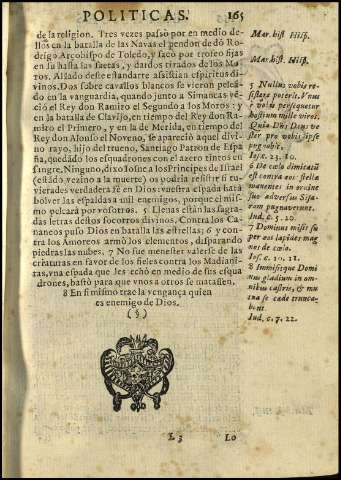 POLITICAS. 165
de la religion. Tres vezes passò por en medio de-
llos en la batalla de las Navas el pendon de dō Ro
drigo Arçobispo de Toledo, y sacò por trofeo fijas
en su hasta las saetas, y dardos tirados de los Mo-
ros. Al lado deste estandarte assistian espiritus di-
vinos. Dos sobre cavallos blancos se vieron pelean
do en la vanguardia, quando junto a Simancas vē-
ciò el Rey don Ramiro el Segundo a los Moros: y
en la batalla de Clavijo, en tiempo del Rey don Ra-
miro el Primero, y en la de Merida, en tiempo del
Rey don Alonso el Noveno, se apareciò aquel divi-
no rayo, hijo del trueno, Santiago Patron de Espa
ña, guiādo los esquadrones con el azero tinto en
sangre. Ninguno, dixo Iosue a los Principes de Israel
(estādo vezino a la muerte) os podria resistir si tu-
vierades verdadera fè en Dios: vuestra espada harà
bolver las espaldas a mil enemigos, porque el mis-
mo peleará por vosotros. 5 Llenas están las sagra-
das letras destos socorros divinos. Contra los Ca-
naneos puso Dios en batalla las estrellas; 6 y con-
tra los Amoreos armò los elementos, disparando
piedras las nubes. 7 No fue menester valerse de las
criaturas en favor de los fieles contra los Madiani-
tas, una espada que les echó en medio de sus esqua
drones, bastò para que unos a otros se matassen.
8 En si mismo trae la vengança quien
es enemigo de Dios.
(§)
L 3 Lo
Mar. hist. Hisp.
Mar. hist. Hisp.
5 Nullus vobis re-
sistere poterit. Vnus
è vobis persequetur
hostium mille viros.
Quia Dñs Deus ve-
ster pro vobis ipse
pugnabit.
Iosue. 23. 10.
6 De cælo dimicatū
est contra eos: stellæ
manentes in ordine
suo adversus Sisa-
ram pugnaverunt.
Iud. c. 5. 20.
7 Dominus misit su
per eos lapides mag
nos de cælo.
Ios. c. 10. 11.
8 Immisitque Domi
nus gladium in om-
nibus castris, & mu
tua se cæde trunca-
bant.
Iud. c. 7. 22.